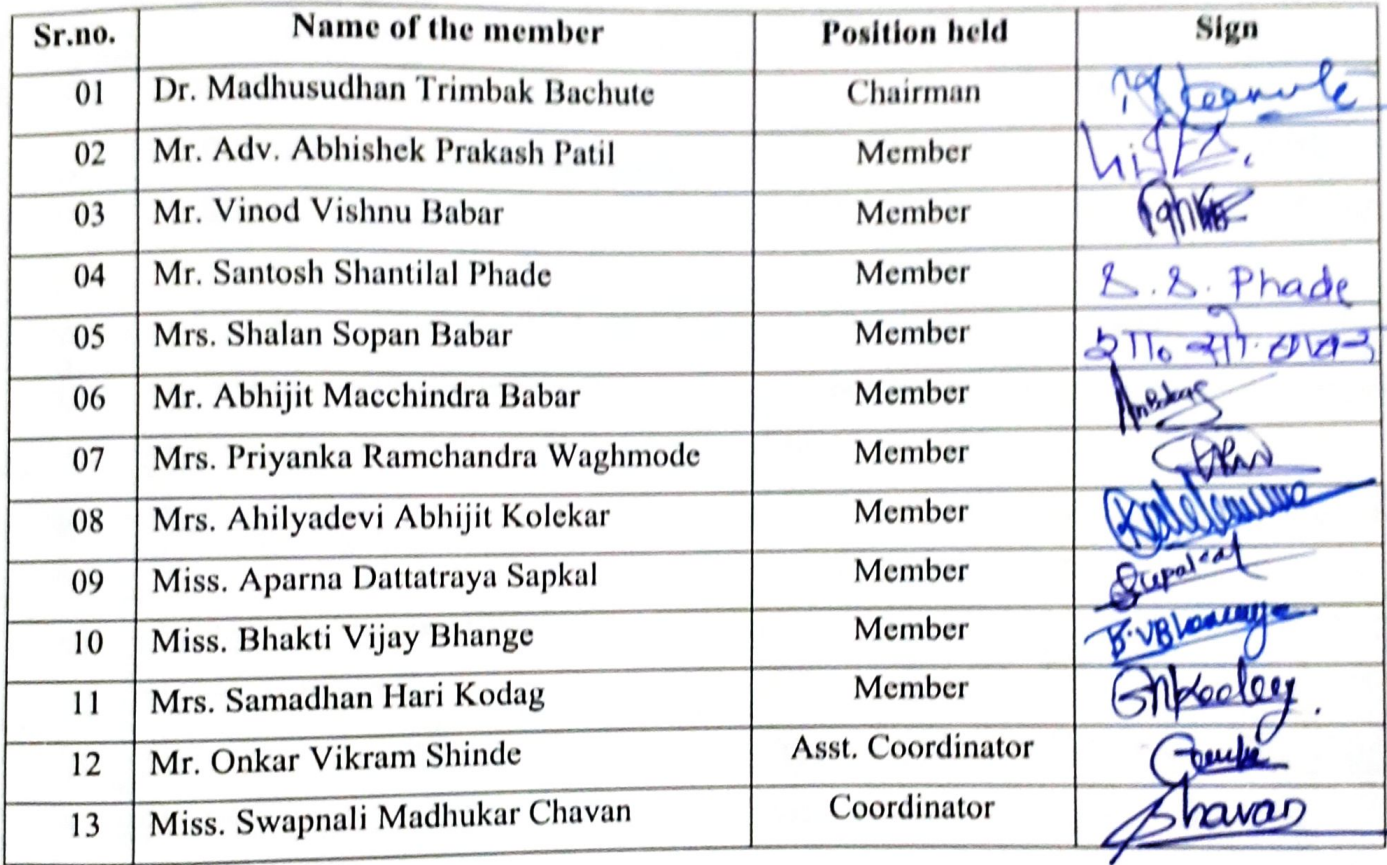 Sr.no. Name of the member Position held Sign
01 Dr. Madhusudhan Trimbak Bachute Chairman
02 Mr. Adv. Abhishek Prakash Patil Member
03 Mr. Vinod Vishnu Babar Member
04 Mr. Santosh Shantilal Phade Member S. S. Phade
05 Mrs. Shalan Sopan Babar Member शा. सो. बाबर
06 Mr. Abhijit Macchindra Babar Member
07 Mrs. Priyanka Ramchandra Waghmode Member
08 Mrs. Ahilyadevi Abhijit Kolekar Member
09 Miss. Aparna Dattatraya Sapkal Member
10 Miss. Bhakti Vijay Bhange Member
11 Mrs. Samadhan Hari Kodag Member
12 Mr. Onkar Vikram Shinde Asst. Coordinator
13 Miss. Swapnali Madhukar Chavan Coordinator